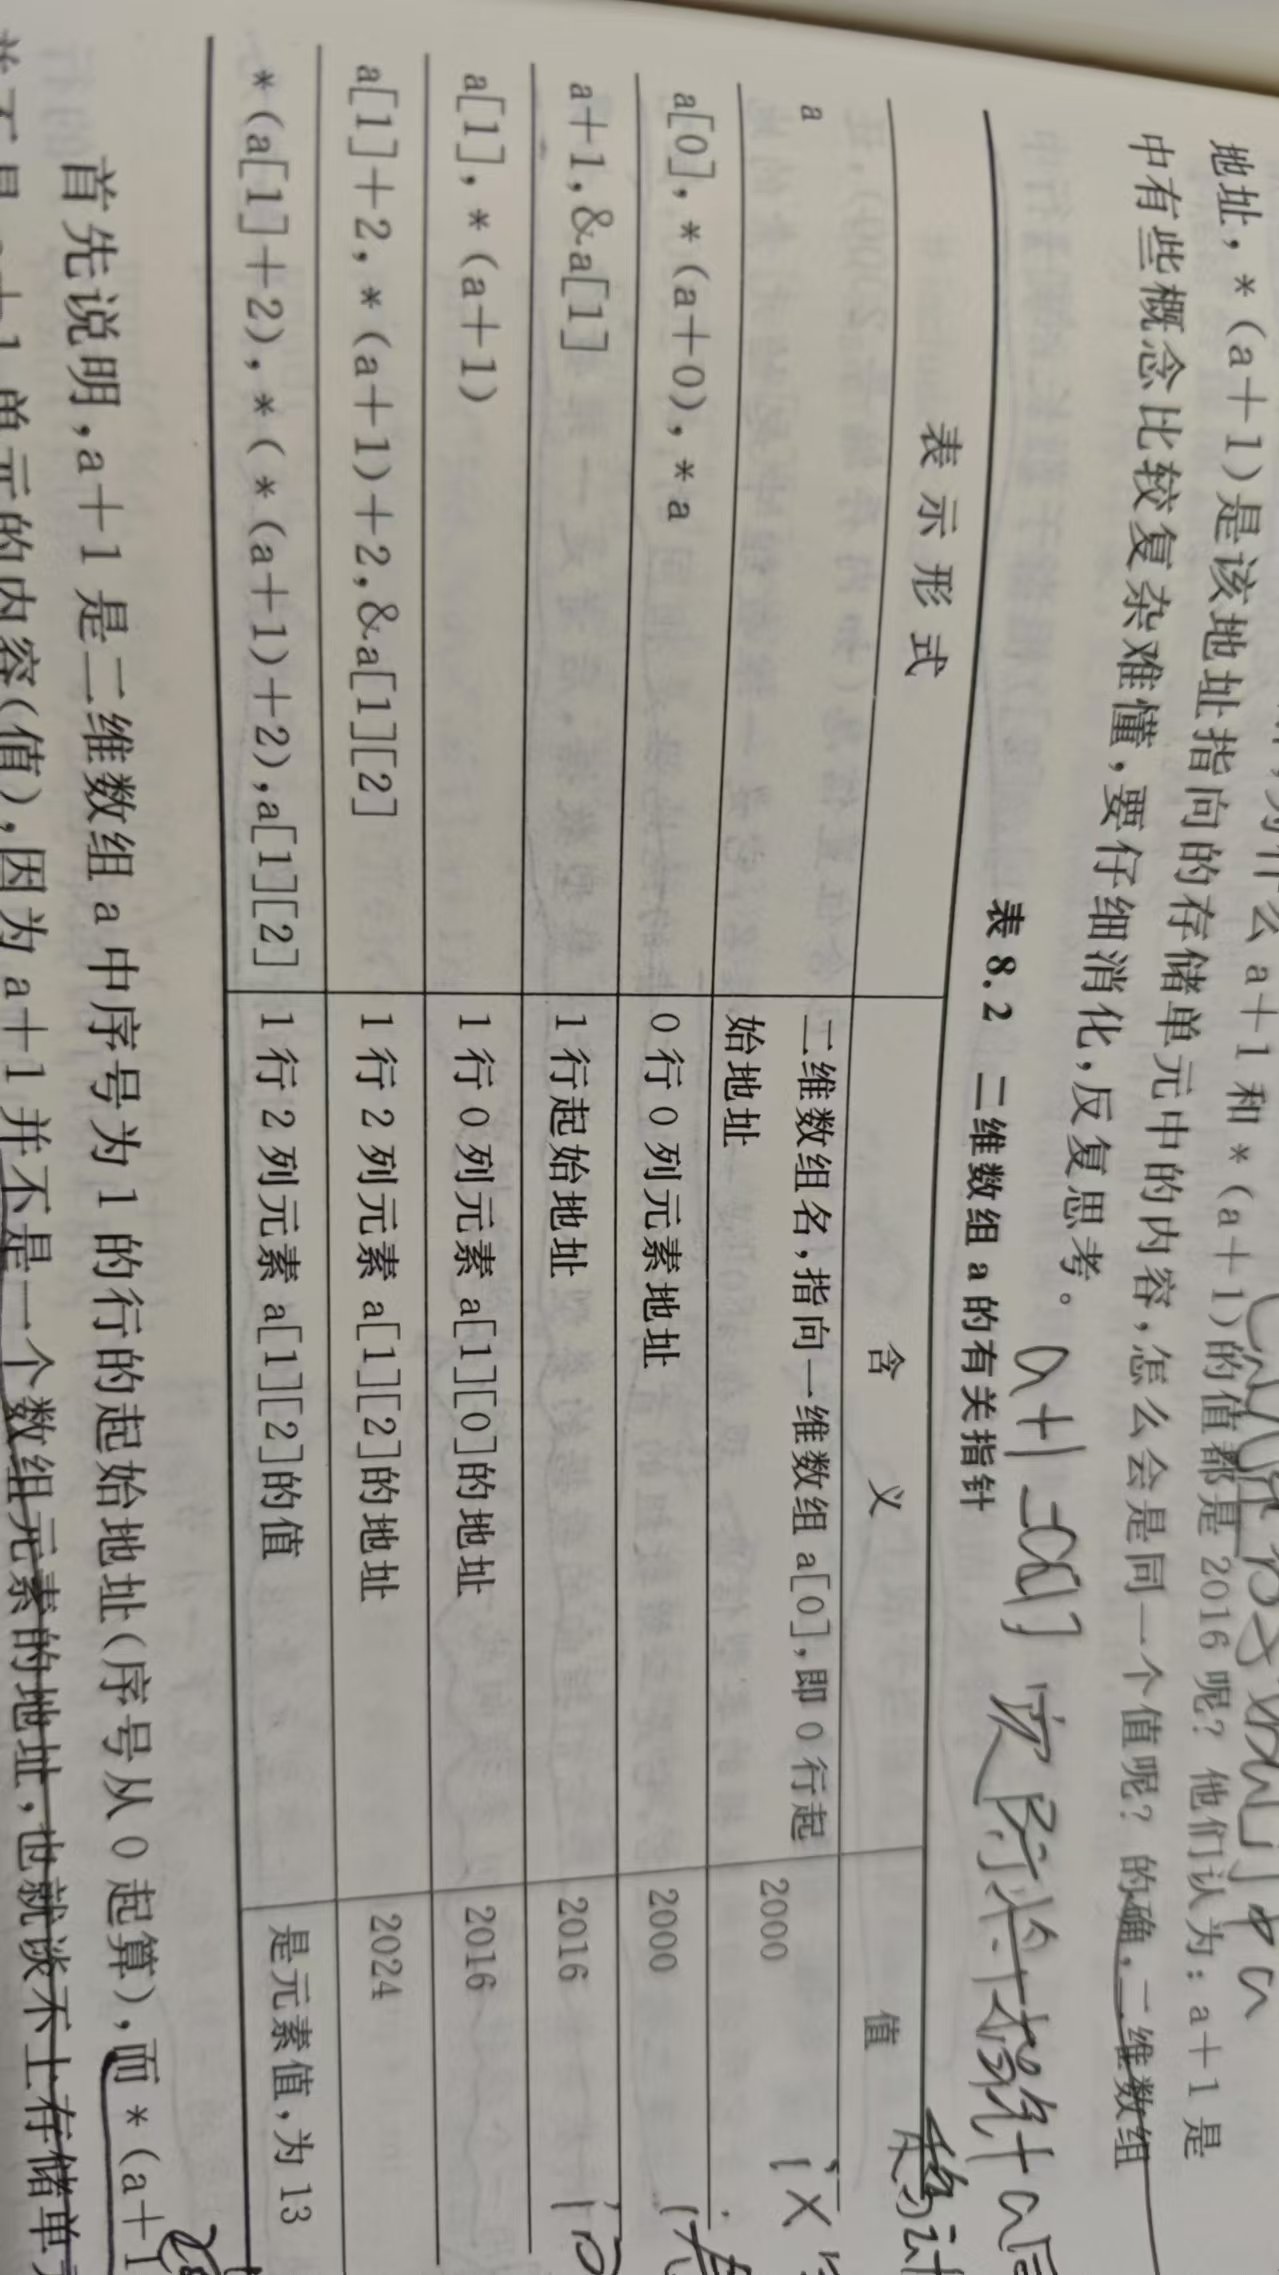 么 a+1 和 *(a+1)的值都是 2016 呢? 他们认为: a+1 是
地址, *(a+1)是该地址指向的存储单元中的内容,怎么会是同一个值呢? 的确,二维数组
中有些概念比较复杂难懂,要仔细消化,反复思考。
表 8.2 二维数组 a 的有关指针
表 示 形 式 含 义 值
a 二维数组名,指向一维数组 a[0],即 0 行起始地址 2000
a[0], *(a+0), *a 0 行 0 列元素地址 2000
a+1,&a[1] 1 行起始地址 2016
a[1], *(a+1) 1 行 0 列元素 a[1][0]的地址 2016
a[1]+2, *(a+1)+2,&a[1][2] 1 行 2 列元素 a[1][2]的地址 2024
*(a[1]+2), *(*(a+1)+2),a[1][2] 1 行 2 列元素 a[1][2]的值 是元素值,为 13
首先说明,a+1 是二维数组 a 中序号为 1 的行的起始地址(序号从 0 起算),而 *(a+1
单元的内容(值),因为 a+1 并不是一个数组元素的地址,也就谈不上存储单